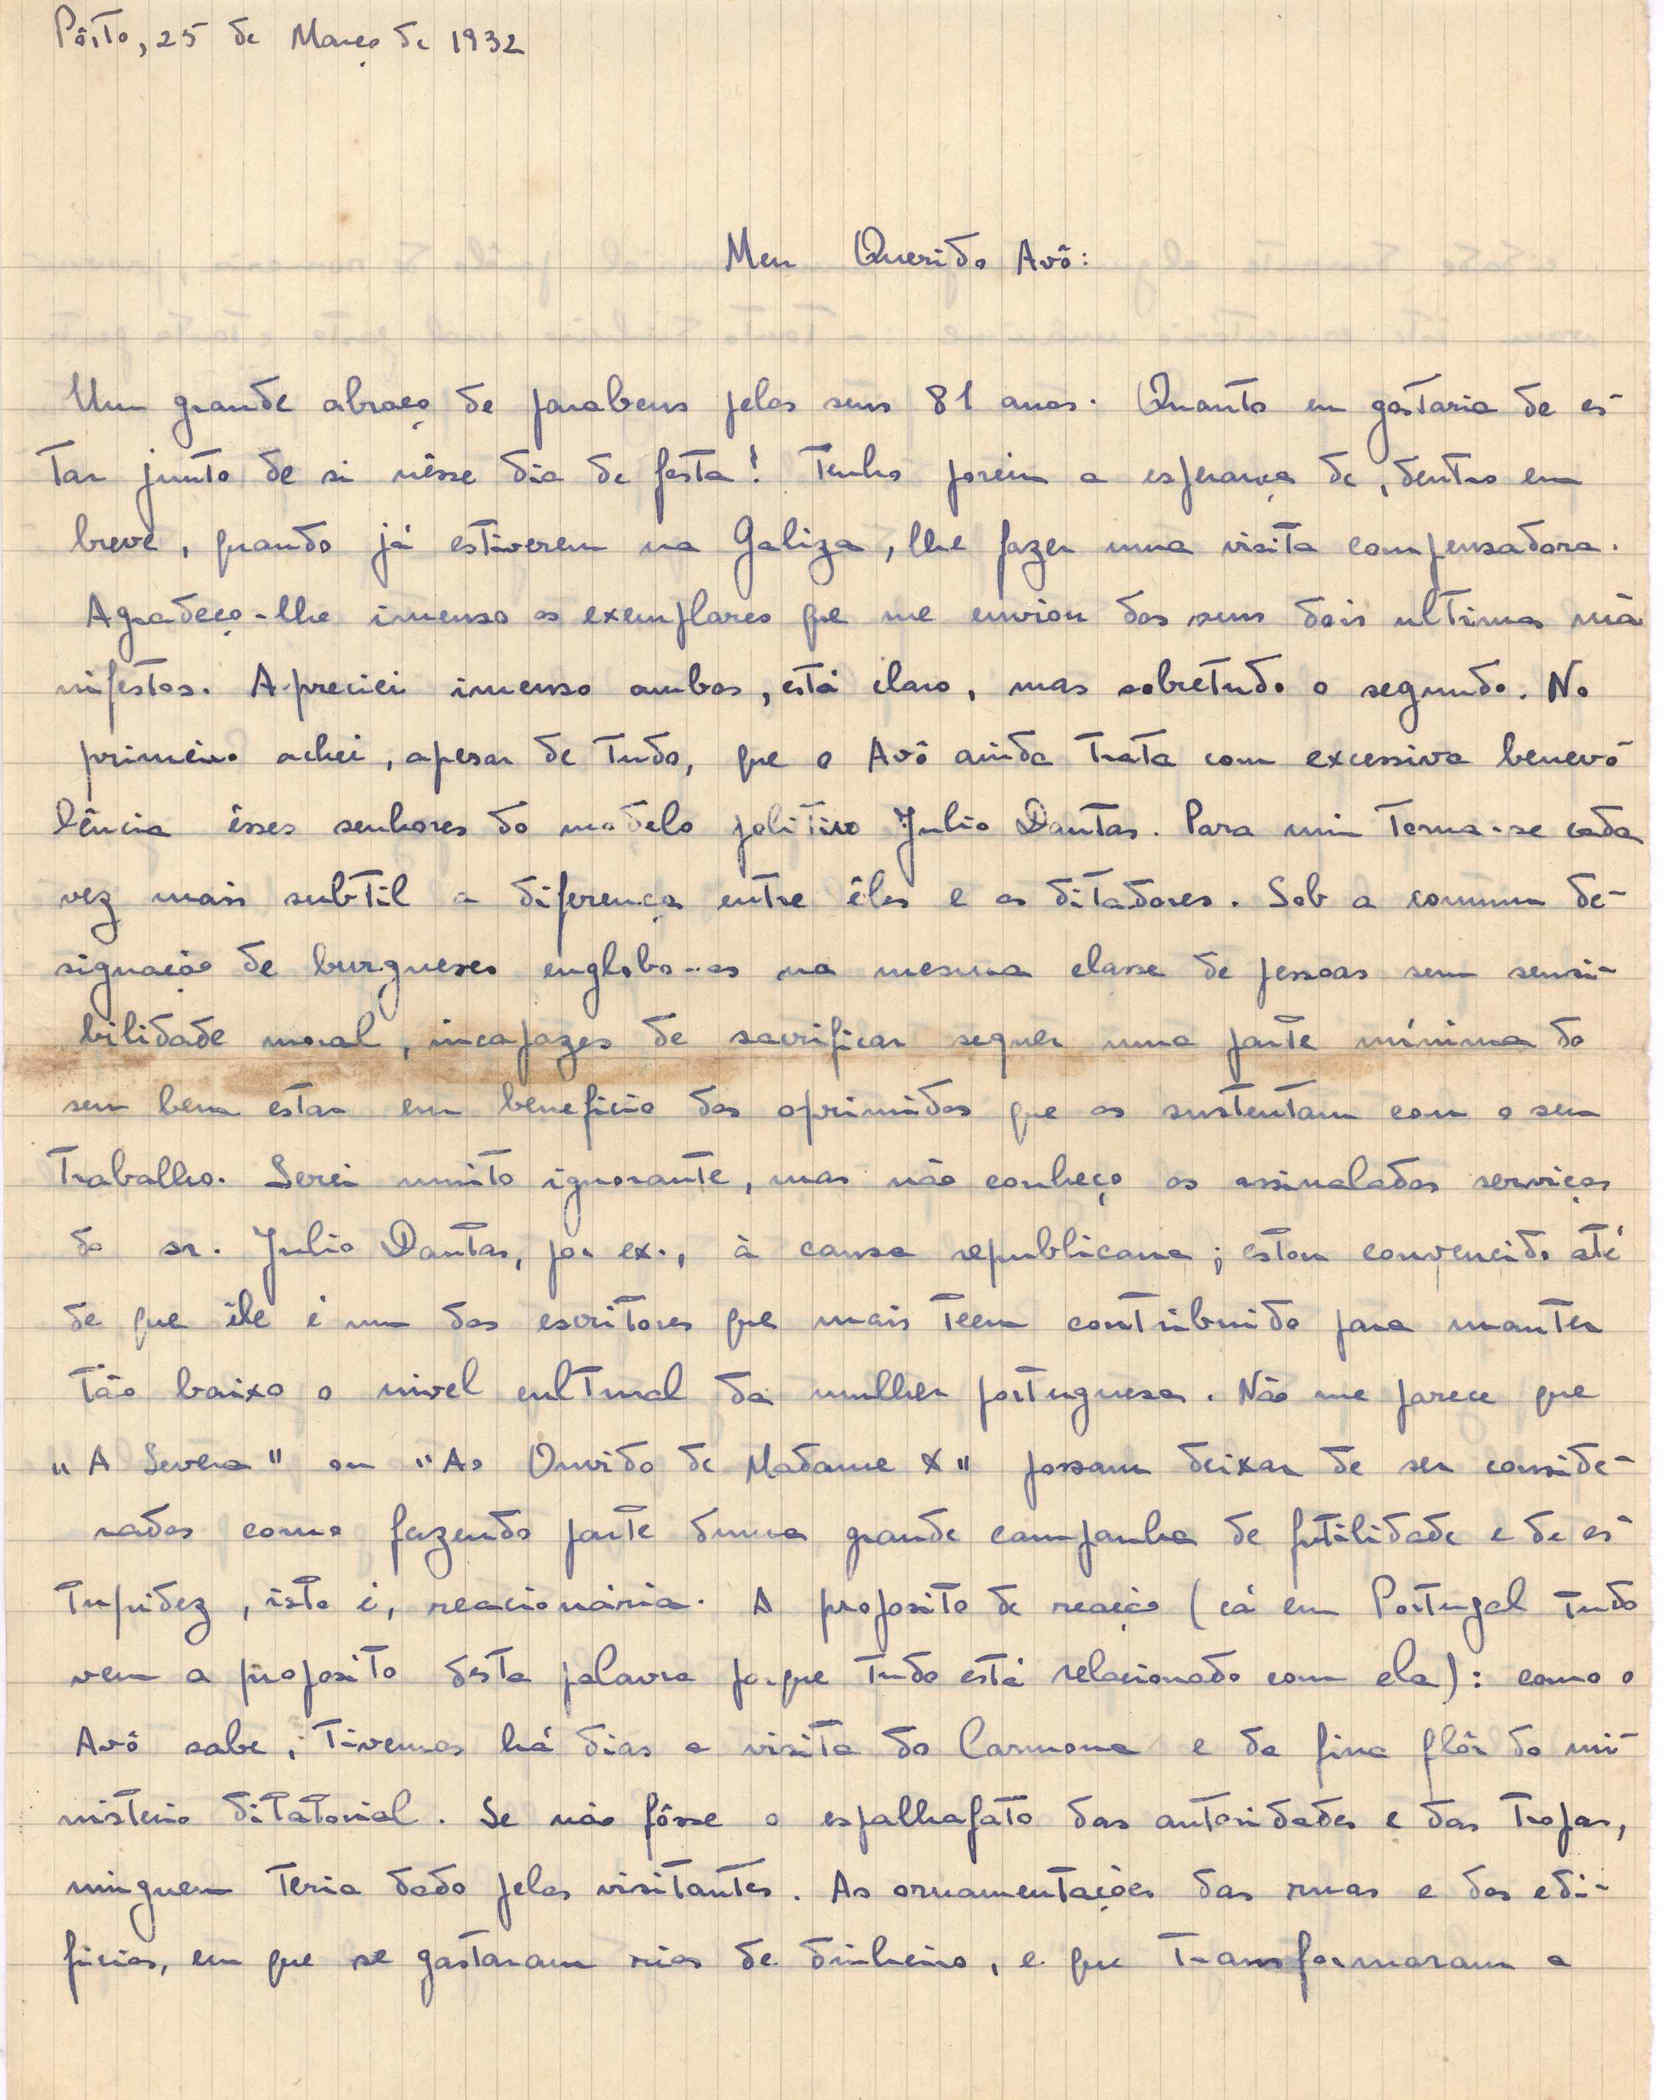 Pôrto, 25 de Março de 1932
Meu Querido Avô:
Um grande abraço de parabens pelos seus 81 anos. Quanto eu gostaria de es-
tar junto de si nêsse dia de festa! Tenho porém a esperança de, dentro em
breve, quando já estiverem na Galiza, lhe fazer uma visita compensadora.
Agradeço-lhe imenso os exemplares que me enviou dos seus dois ultimos ma-
nifestos. Apreciei imenso ambos, está claro, mas sobretudo o segundo. No
primeiro achei, apesar de tudo, que o Avô ainda trata com excessiva benevo-
lência êsses senhores do modelo politico Julio Dantas. Para mim torna-se cada
vez mais subtil a diferença entre êles e os ditadores. Sob a comum de-
signação de burgueses englobo-os na mesma classe de pessoas sem sensi-
bilidade moral, incapazes de sacrificar sequer uma parte mínima do
seu bem estar em beneficio dos oprimidos que os sustentam com o seu
trabalho. Serei muito ignorante, mas não conheço os assinalados serviços
do sr. Julio Dantas, por ex., à causa republicana; estou convencido até
de que êle é um dos escritores que mais teem contribuido para manter
tão baixo o nivel cultural da mulher portuguesa. Não me parece que
"A Severa" ou "Ao Ouvido de Madame X" possam deixar de ser conside-
rados como fazendo parte duma grande campanha de futilidade e de es-
tupidez, isto é, reacionária. A proposito de reação (cá em Portugal tudo
vem a proposito desta palavra porque tudo está relacionado com ela): como o
Avô sabe, tivemos há dias a visita do Carmona e da fina flôr do mi-
nisterio ditatorial. Se não fôsse o espalhafato das autoridades e das tropas,
ninguem teria dado pelos visitantes. As ornamentações das ruas e dos edi-
ficios, em que se gastaram rios de dinheiro, e que transformaram a